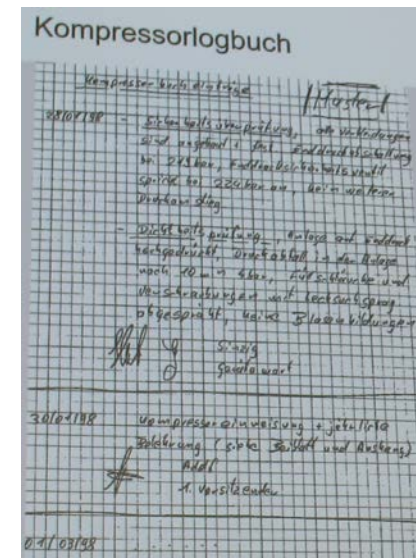 Kompressorlogbuch
Kompressorbucheinträge
Muster!
28/01/98 - Sicherheitsüberprüfung, alle Verbindungen
sind angebaut + fest. Enddruckabschaltung
bei 215 bar, Enddrucksicherheitsventil
spricht bei 224 bar an, kein weiterer
Druckanstieg
- Dichtheitsprüfung, Anlage auf Enddruck
hochgedrückt, Druckabfall in der Anlage
nach 10 min 4 bar, Füllschläuche und
Verschraubungen mit Lecksuchspray
abgesprüht, keine Blasenbildungen
Sinzig
Gerätewart
30/01/98 Kompressoreinweisung + jährliche
Belehrung (siehe Beiblatt und Aushang)
1. Vorsitzender
01/03/98 . . . . . .